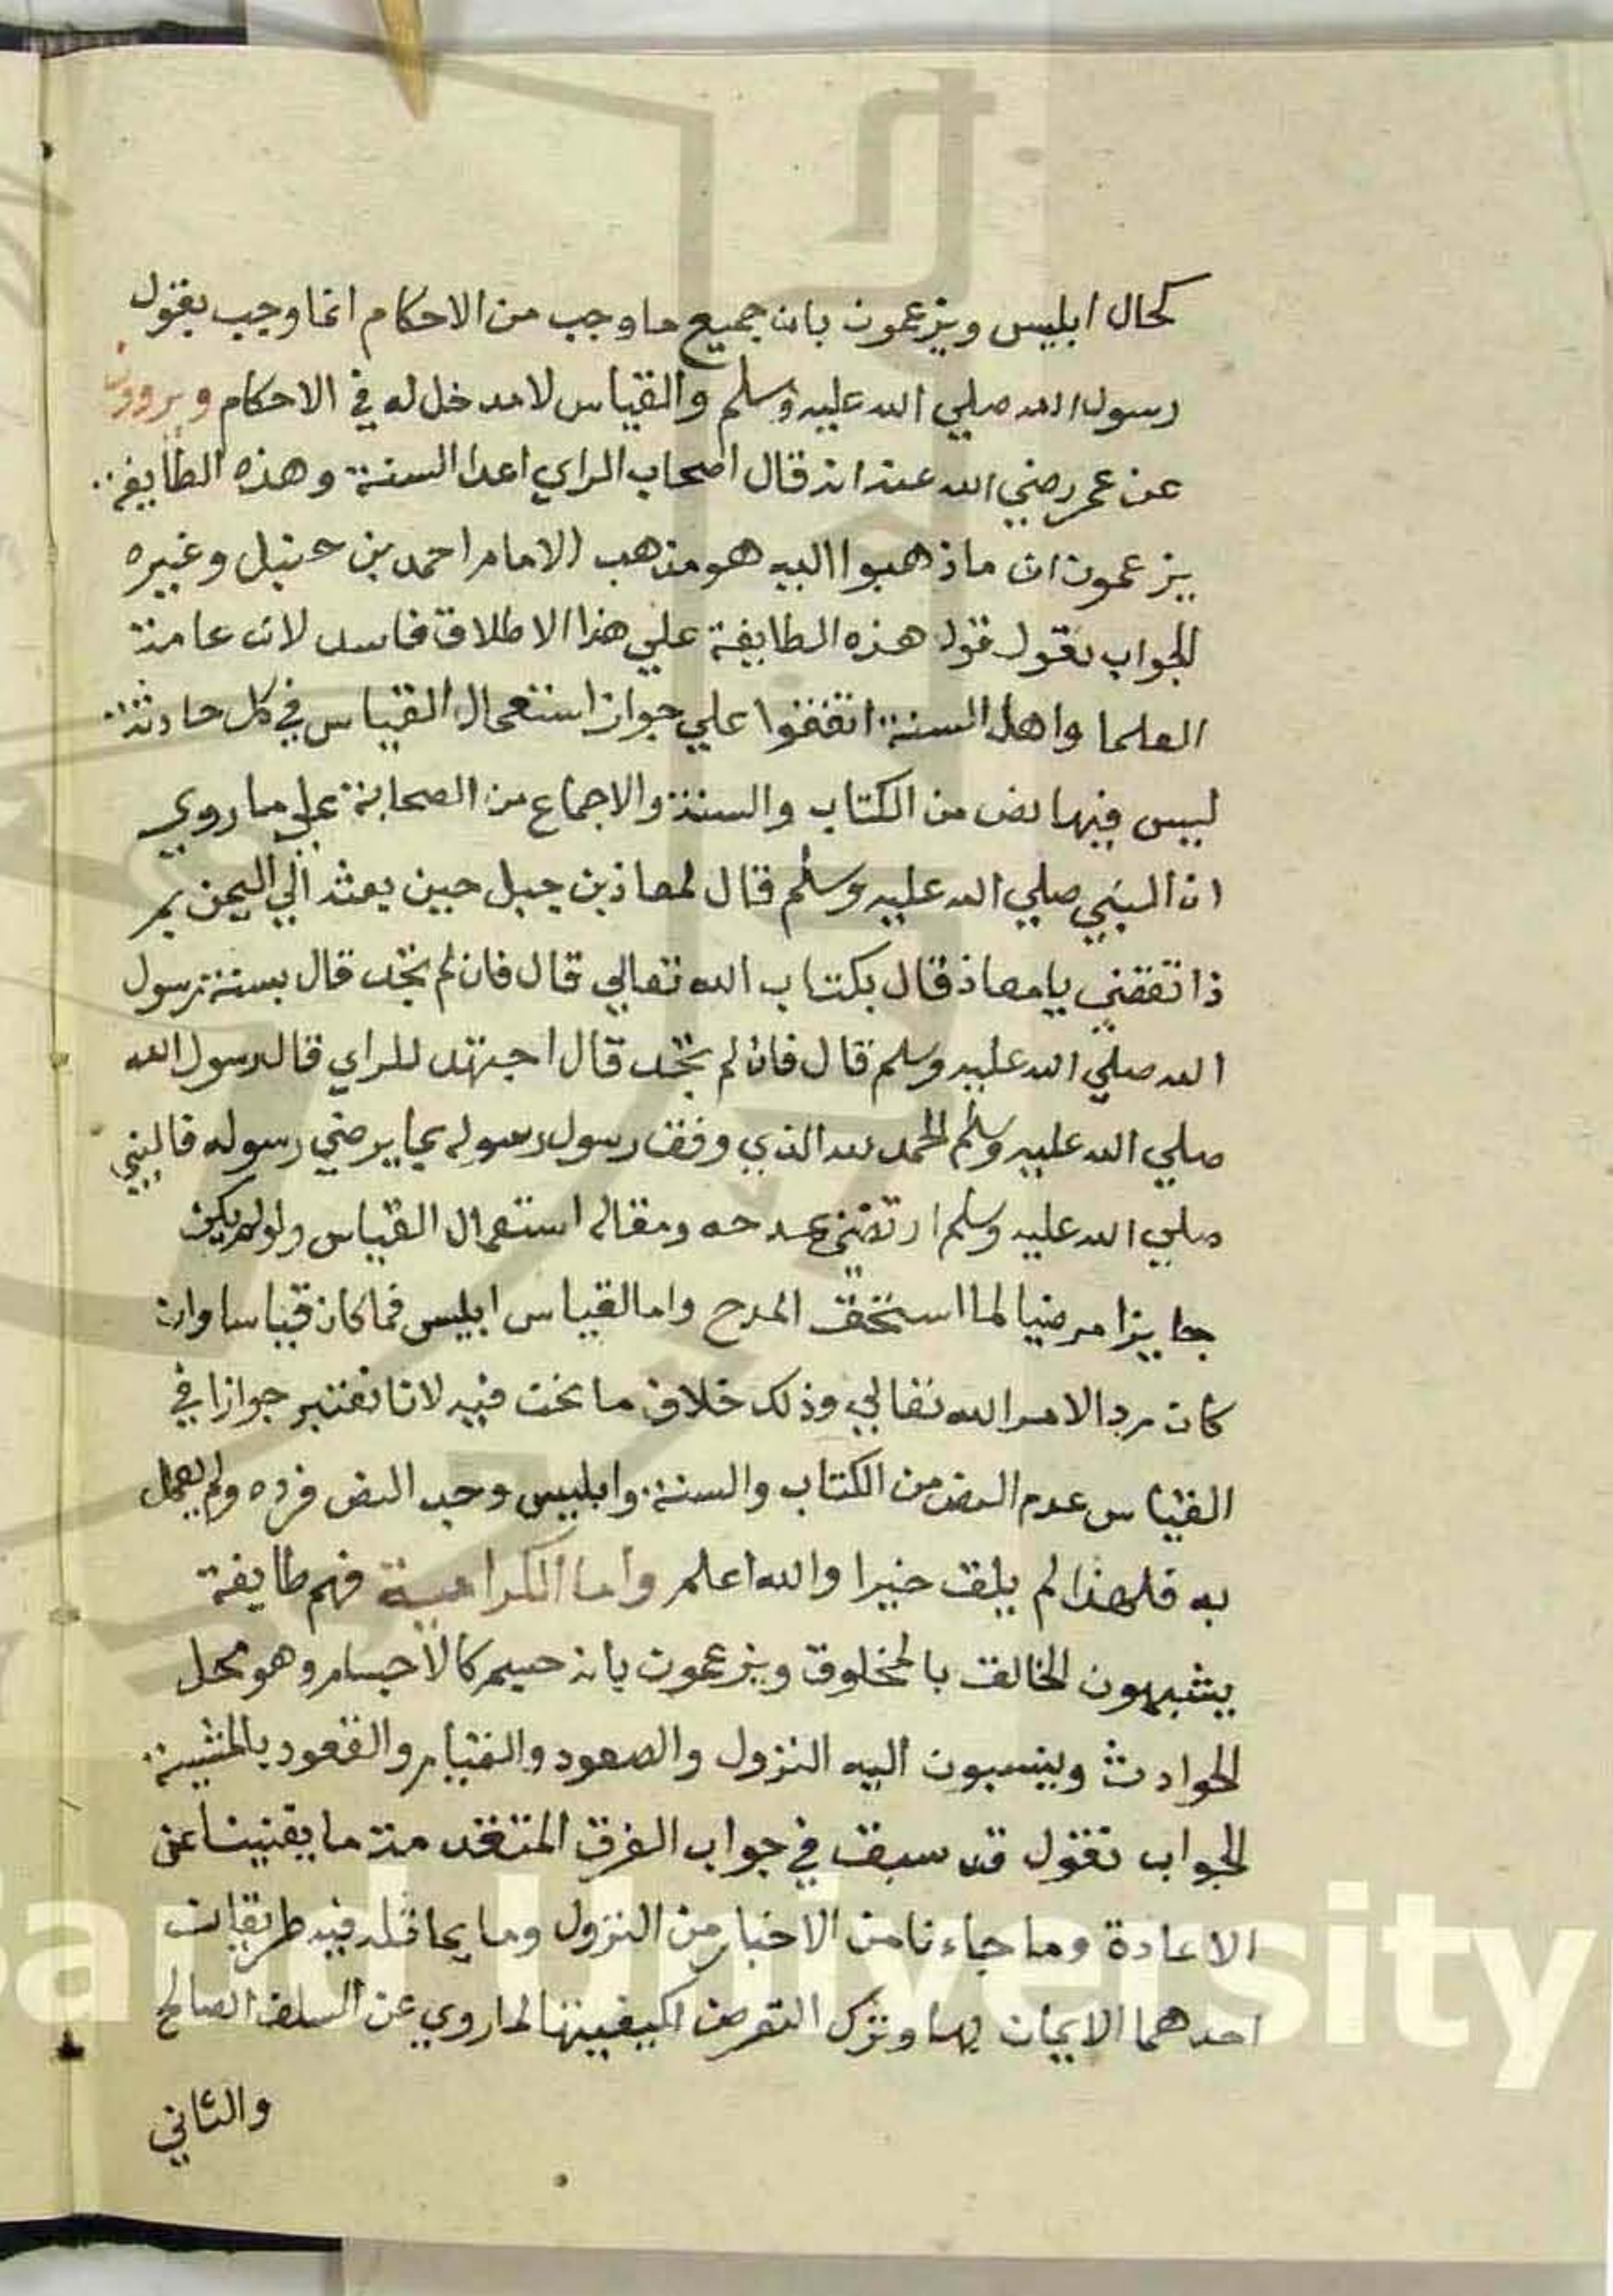 كحال ابليس ويزعمون بان جميع ما وجب من الاحكام انما وجب بقول
رسول الله صلي الله عليه وسلم والقياس لا مدخل له في الاحكام ويروون
عن عمر رضي الله عنه انه قال اصحاب الراي اعدا السنة وهذه الطايفة
يزعمون ان ما ذهبوا اليه هو مذهب الامام احمد بن حنبل وغيره
الجواب نقول قول هذه الطايفة علي هذا الاطلاق فاسد لان عامة
العلما واهل السنة اتفقوا علي جواز استعمال القياس في كل حادثة
ليس فيها نص من الكتاب والسنة والاجماع من الصحابة علي ما روي
ان النبي صلي الله عليه وسلم قال لمعاذ بن جبل حين بعثه الي اليمن بم
ذا تقضي يا معاذ قال بكتاب الله تعالي قال فان لم تجد قال بسنة رسول
الله صلي الله عليه وسلم قال فان لم تجد قال اجتهد للراي قال رسول الله
صلي الله عليه وسلم الحمد لله الذي وفق رسول رسوله بما يرضي رسوله فالنبي
صلي الله عليه وسلم ارتضي بمدحه ومقاله استعمال القياس ولو لم يكن
جايزا مرضيا لما استحق المدح واما القياس ابليس فما كان قياسا وان
كان مرد الامر الله تعالي وذلك خلاف ما نحن فيه لانا نعتبر جوازا في
القياس عدم النص من الكتاب والسنة وابليس وجد النص فرده ولم يعمل
به فلهذا لم يلق خيرا والله اعلم واما الكرامية فهم طايفة
يشبهون الخالق بالمخلوق ويزعمون بانه جسم كالاجسام وهو محل
الحوادث وينسبون اليه النزول والصعود والقيام والقعود بالمشية
الجواب نقول قد سبق في جواب الفرق المتقدمة ما يغنينا عن
الاعادة وما جاءنا من الاخبار من النزول وما يماثله فيه طريقان
احدهما الايمان بها وترك التعرض لكيفيتها لما روي عن السلف الصالح
والثاني
Saud University